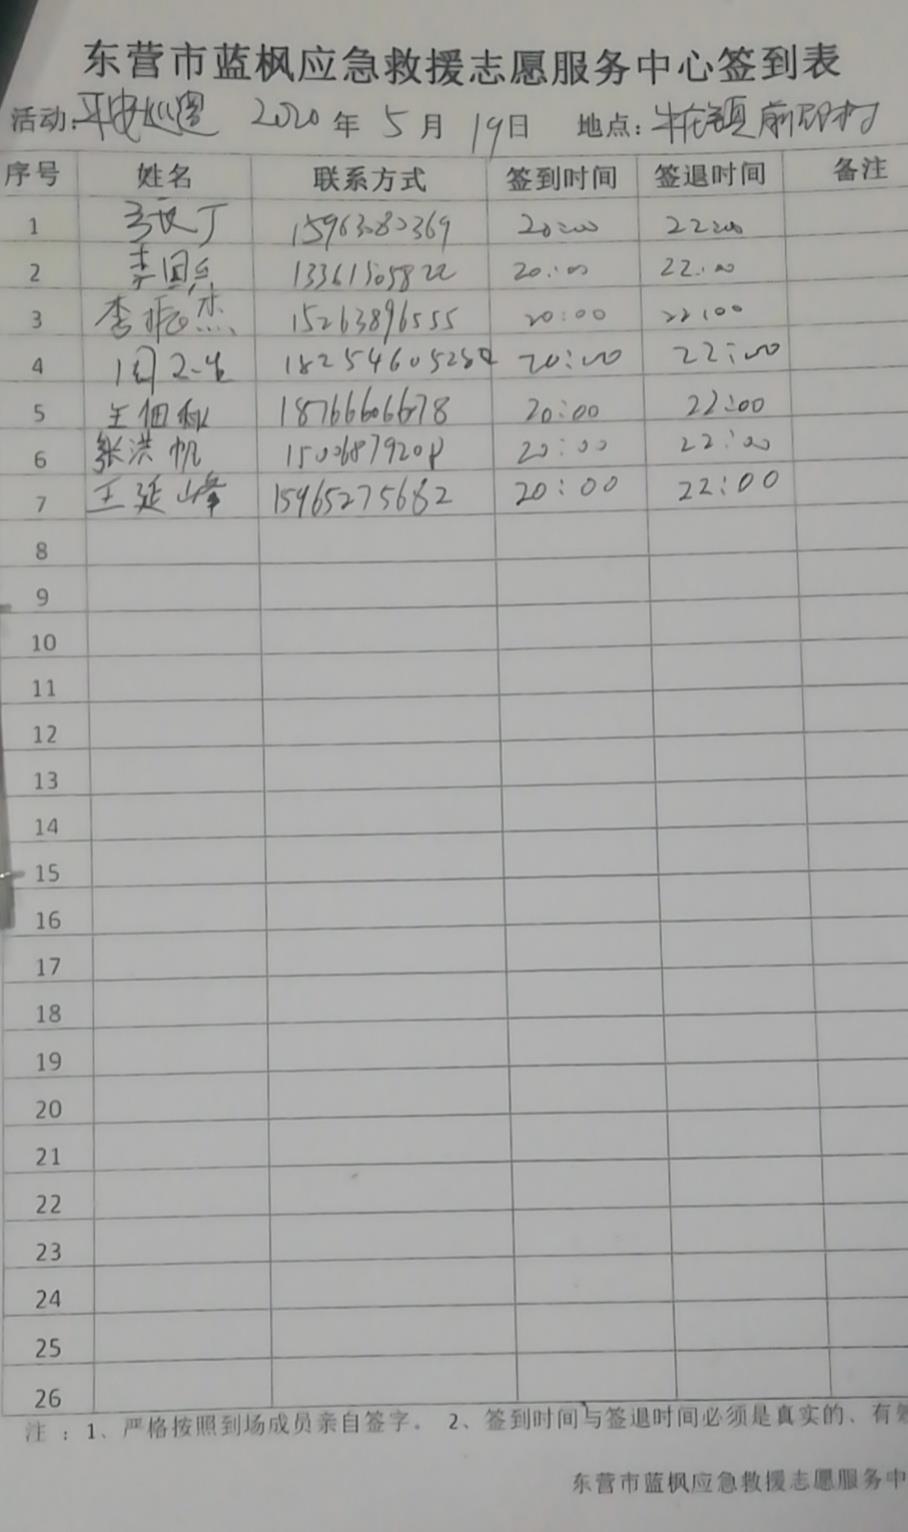 东营市蓝枫应急救援志愿服务中心签到表
活动:平安巡逻 2020年5月19日 地点:牛庄镇前邵村
序号 姓名 联系方式 签到时间 签退时间 备注
1 20:00 22:00
2 李国兵 13361505822 20:00 22:00
3 李振杰 15263896555 20:00 22:00
4 20:00 22:00
5 18766606678 20:00 22:00
6 张洪帆 15006879208 20:00 22:00
7 王延峰 15965275682 20:00 22:00
8
9
10
11
12
13
14
15
16
17
18
19
20
21
22
23
24
25
26
注:1、严格按照到场成员亲自签字. 2、签到时间与签退时间必须是真实的、有效
东营市蓝枫应急救援志愿服务中